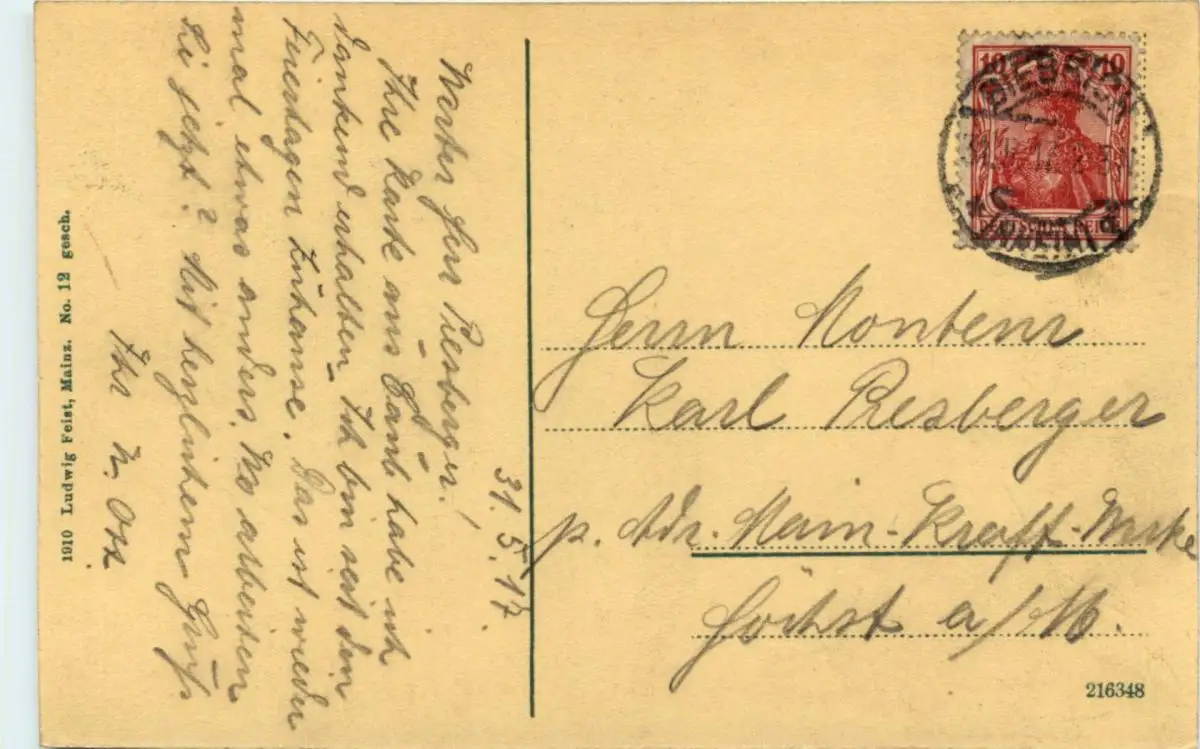 31.5.17
Werter Herr Riesberger!
Ihre Karte aus Danb habe ich
dankend erhalten. Ich bin seit den
Feiertagen Zuhause. Das ist wieder
mal etwas anders. Wo arbeiten
Sie jetzt? Mit herzlichem Gruß
Ihr
1910 Ludwig Feist, Mainz. No. 12 gesch.
10 10
BIEBRICH
DEUTSCHES REICH
(RHEIN)
Herrn Monteur
Karl Riesberger
p. Adr. Main-Kraft-Werke
Höchst a/M.
216348